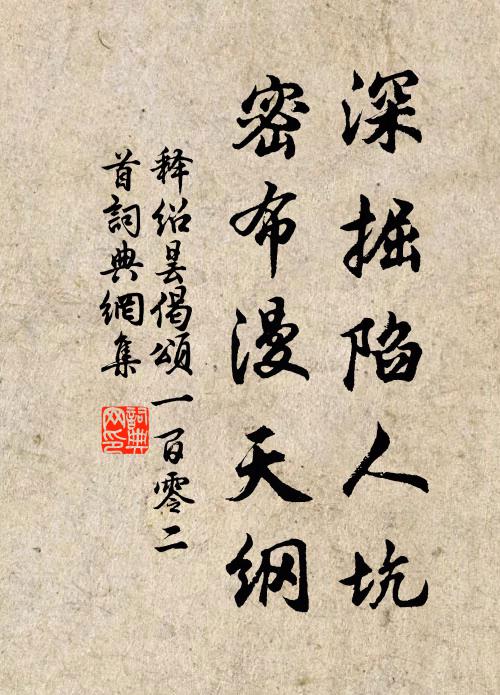 深掘陷人坑
密布漫天纲
释绍昙偈颂一百零二
首詞典網集
詞典网印